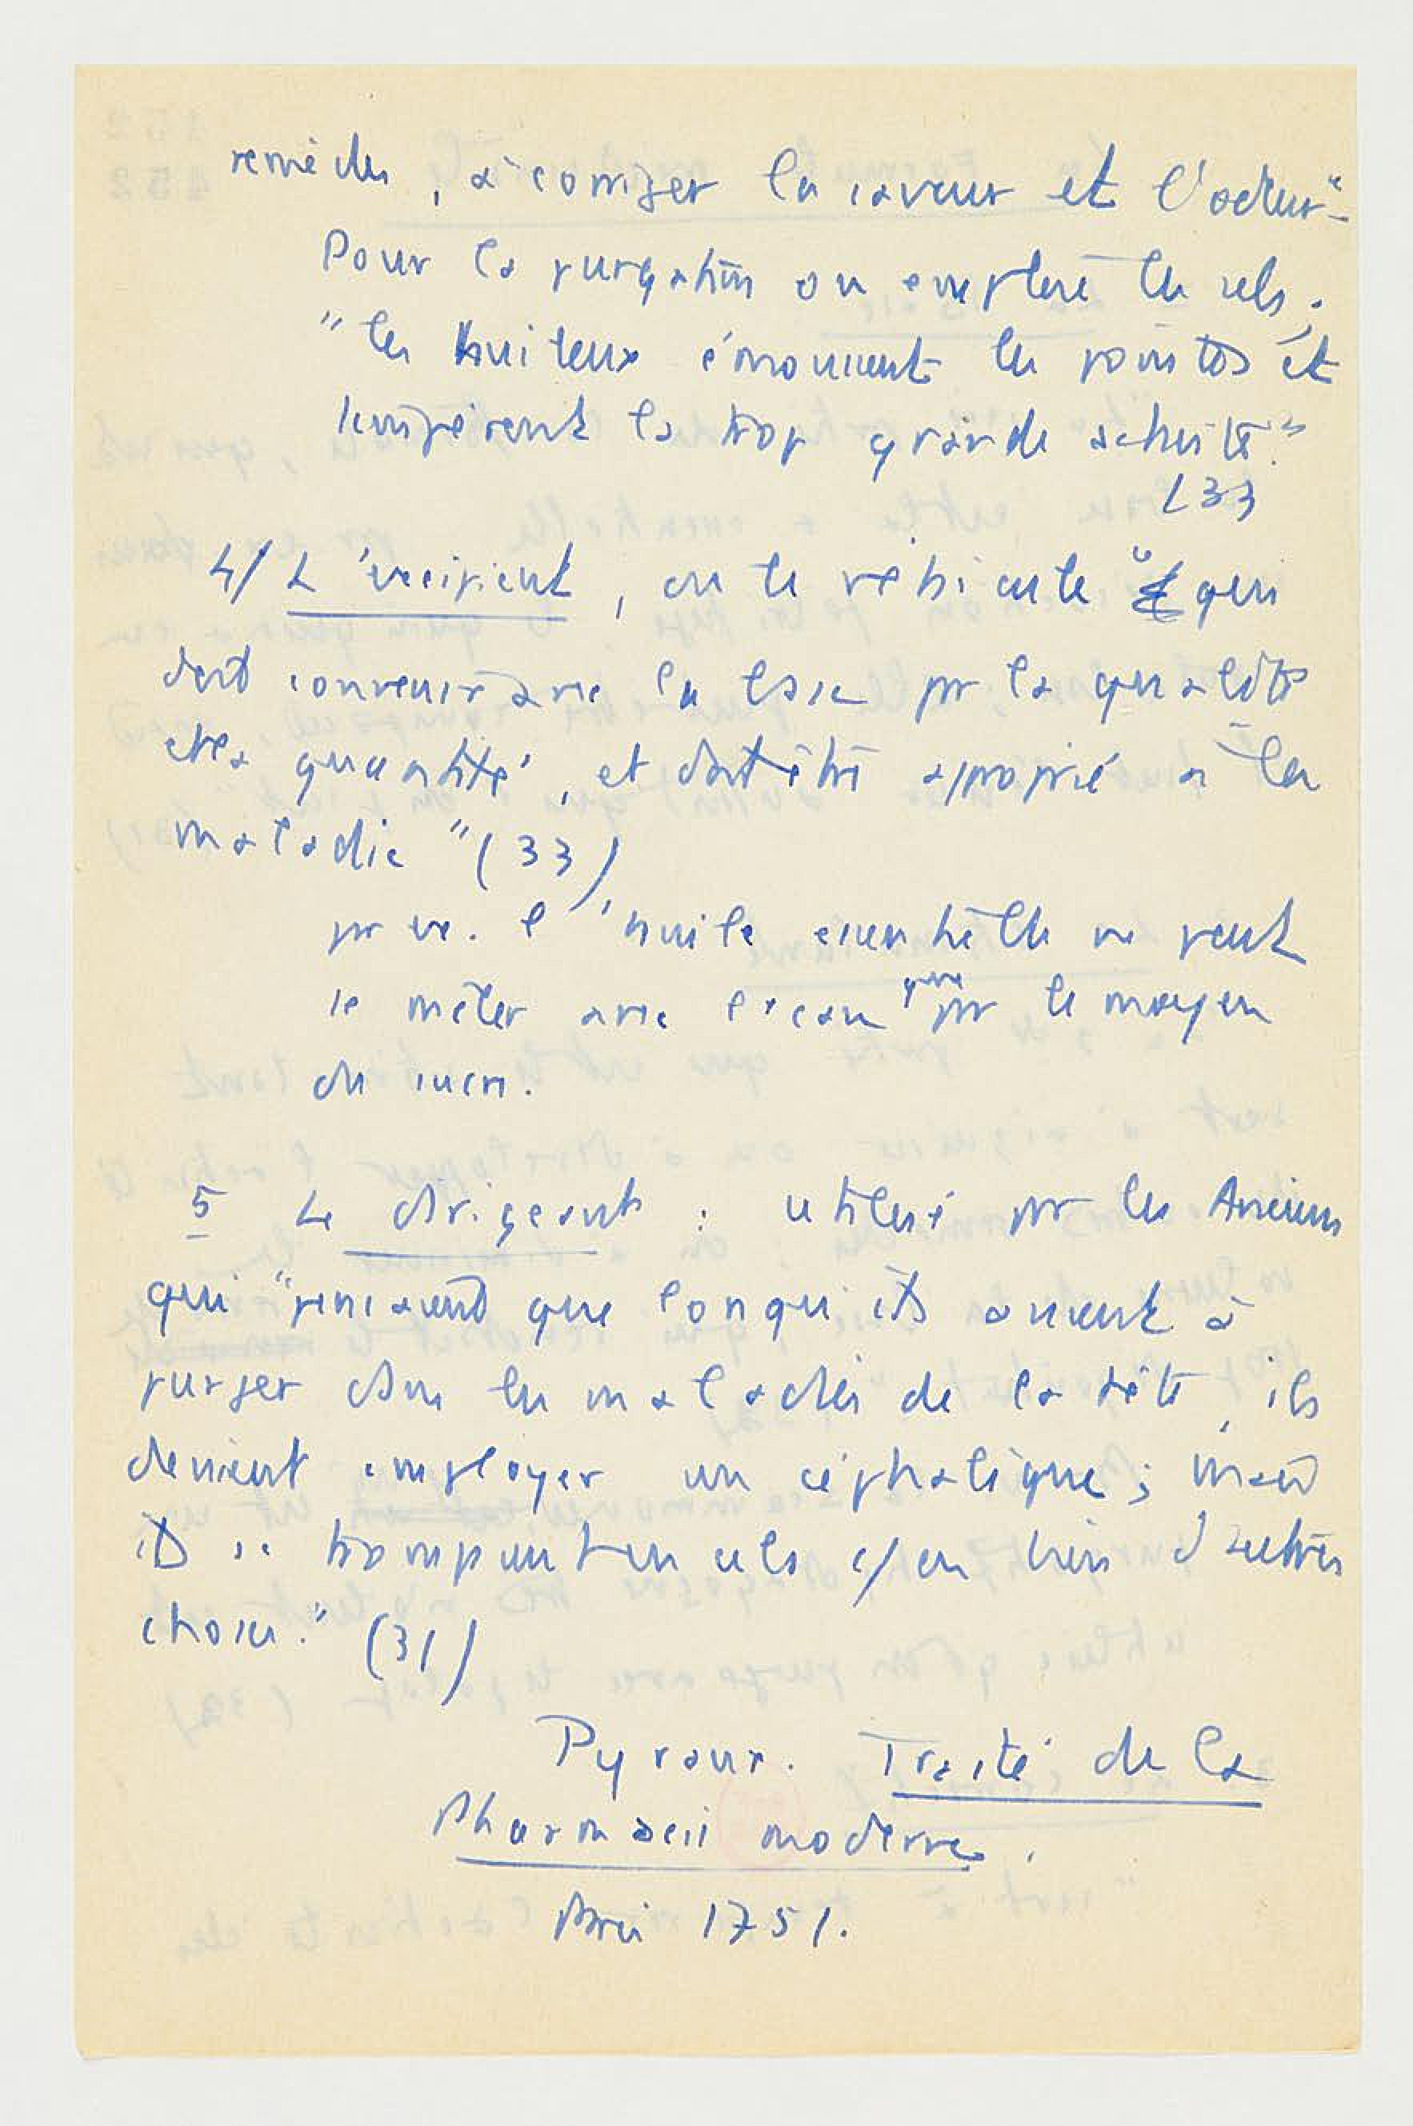 remèdes, à corriger la saveur et l'odeur"
Pour les purgatifs on emploie les sels ;
"les huileux émoussent les pointes et
tempèrent la trop grande activité."
(33
4/ L'excipient, ou le véhicule "qui
doit convenir avec la base pr la qualité
et la quantité, et doit être approprié à la
maladie" (33)
pr ex. l'huile essentielle ne peut
se mêler avec l'eau que pr le moyen
du sucre.
5 Le dirigeant : utilisé pr les Anciens
qui "pensaient que lorsqu'ils avaient à
purger dans les maladies de la tête, ils
devaient employer un céphalique ; mais
ils se trompaient en cela c/ en bien d'autres
choses." (31)
Traité de la
Pharmacie moderne.
Paris 1751.